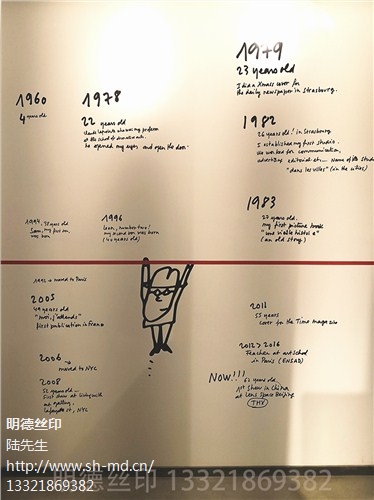 1960
4 years old
1978
22 years old
Claude Lapointe who was my professor
at the school of decorative arts.
he opened my eyes and open the door.
1979
23 years old
I did a Xmas cover for
the daily newspaper in Strasbourg.
1982
26 years old! in Strasbourg
I established my first studio.
We worked for communication,
advertising editorial etc... Name of the studio
"dans les villes" (in the cities)
1983
27 years old.
my first picture book
"une vieille histoire"
(an old story)
1994, 38 years old
Sam, my first son
was born
1996
Leon, number two!
my second son was born
(40 years old)
→ moved to Paris
2005
49 years old
"moi, j'attends"
first publication in France
2006
→ moved to NYC
2008
52 years old...
First show at living with
art gallery.
Lafayette st, NYC
2011
55 years
cover for the Time magazine
2012 > 2016
Teacher at art school
in Paris (ENSAD)
NOW!!!
61 years old,
1st show in China
at Lens Space Beijing
THX
明德丝印
陆先生
http://www.sh-md.cn/
13321869382
明德丝印 13321869382